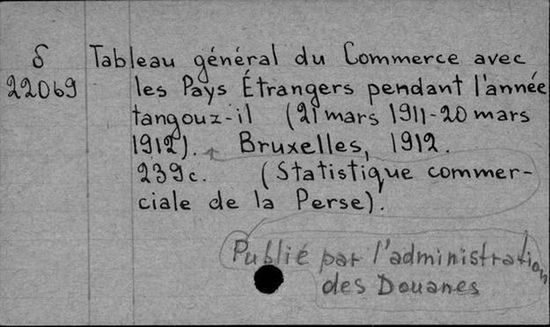 δ Tableau général du Commerce avec
22069 les Pays Étrangers pendant l'année
tangouz-il (21 mars 1911-20 mars
1912). Bruxelles, 1912.
239c. (Statistique commer-
ciale de la Perse).
Publié par l'administration
des Douanes